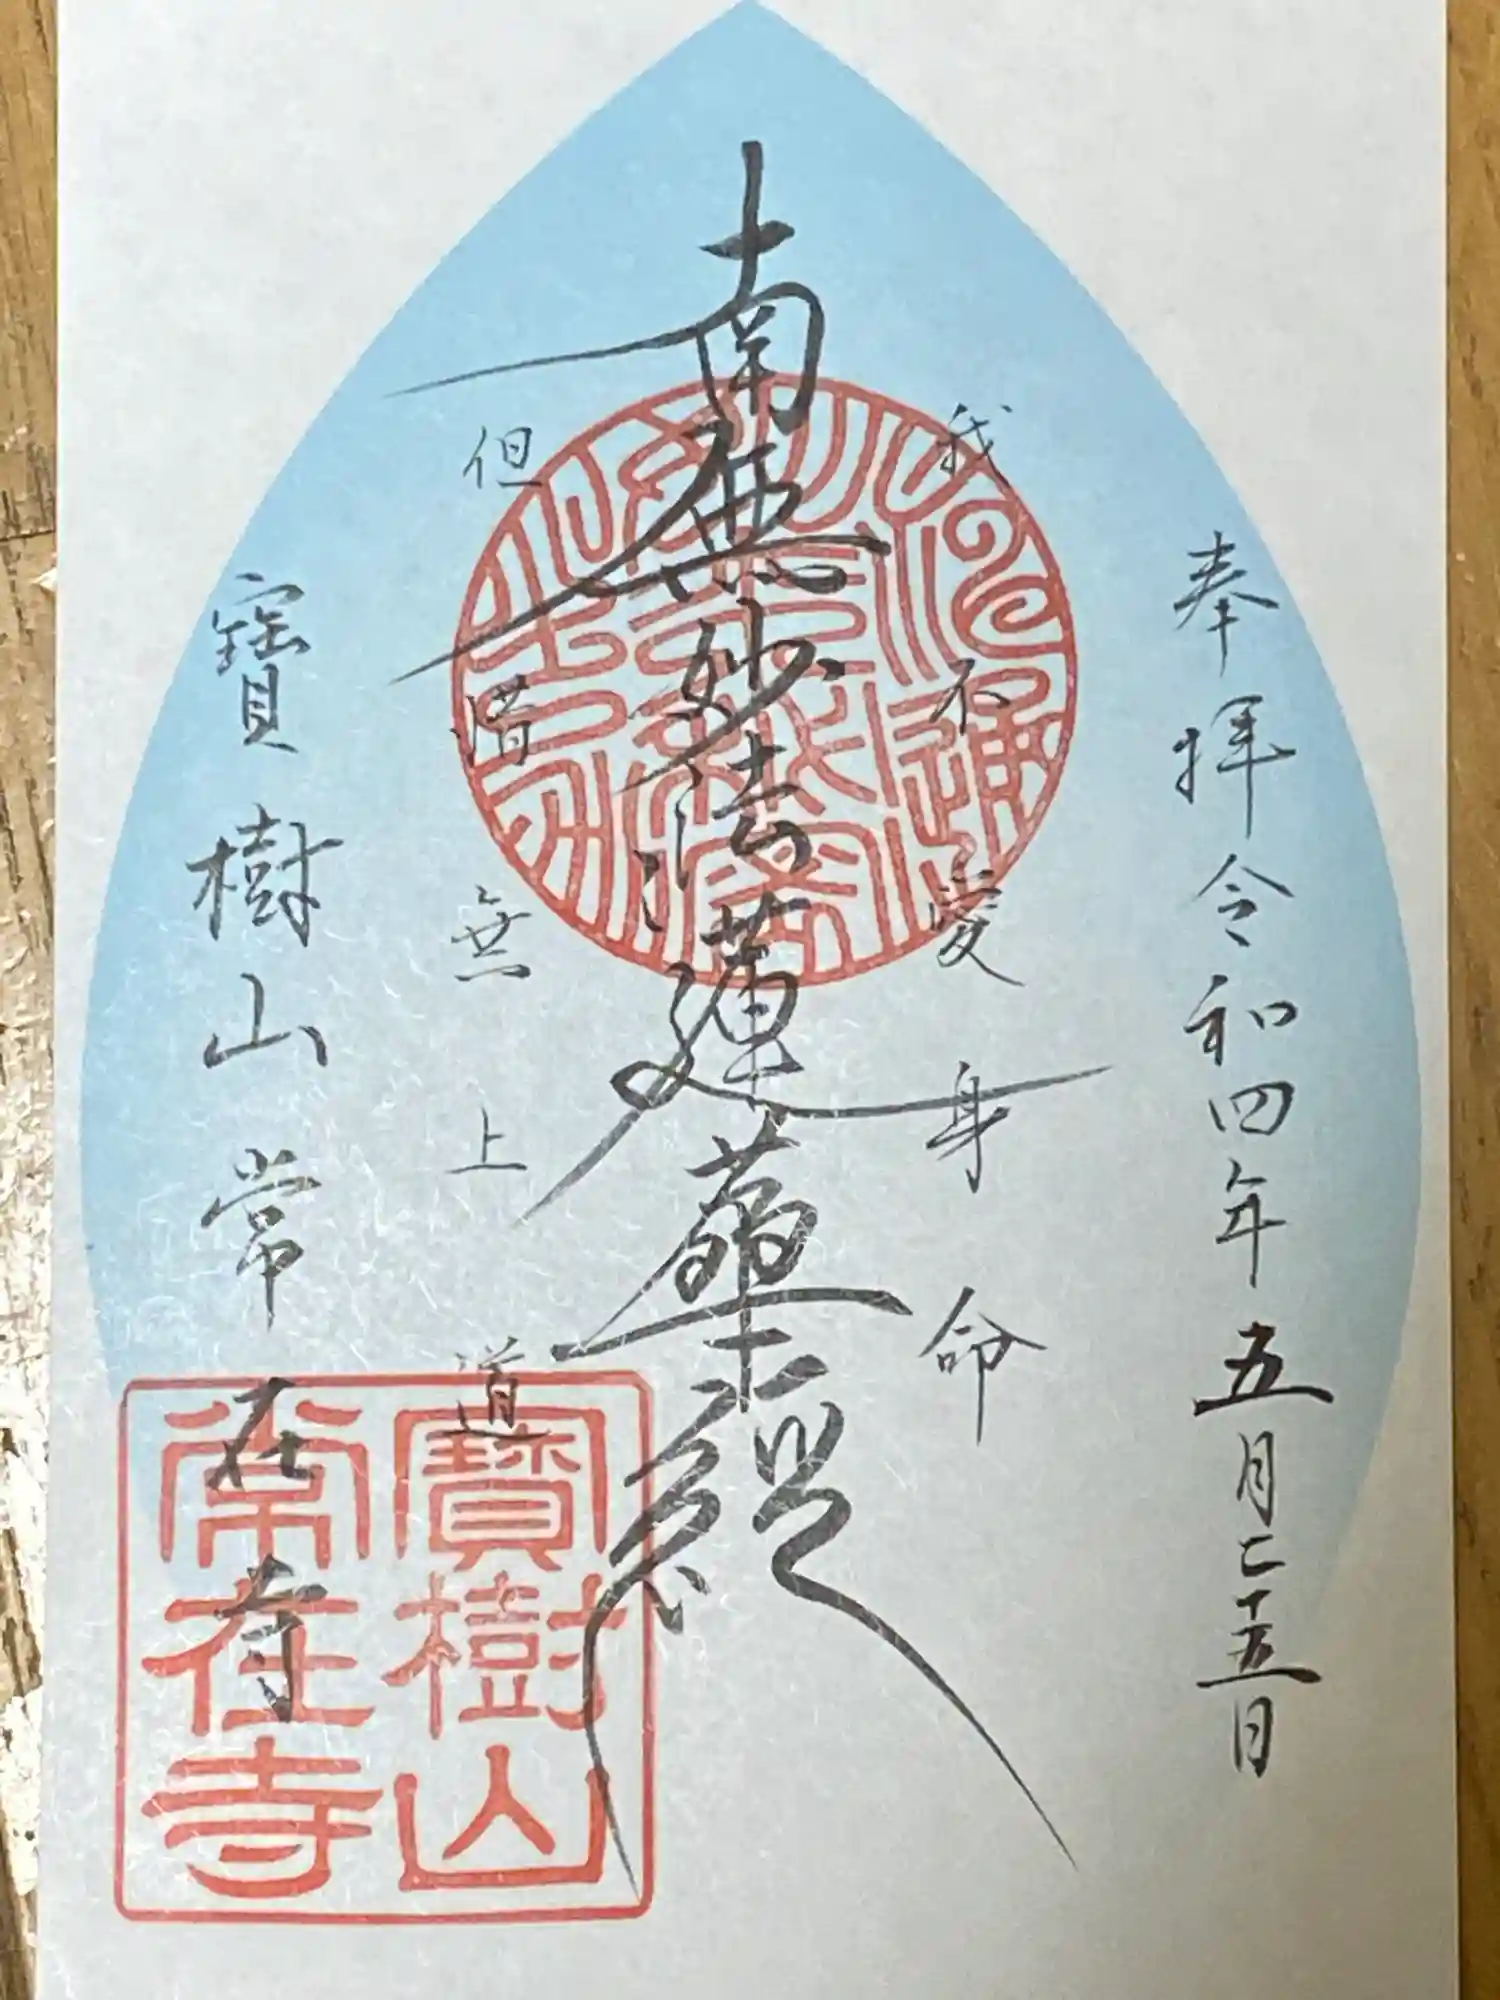 奉拝 令和四年五月二十五日
我不愛身命
南無妙法蓮華経
但惜無上道
寶樹山 常在寺
寶樹山
常在寺